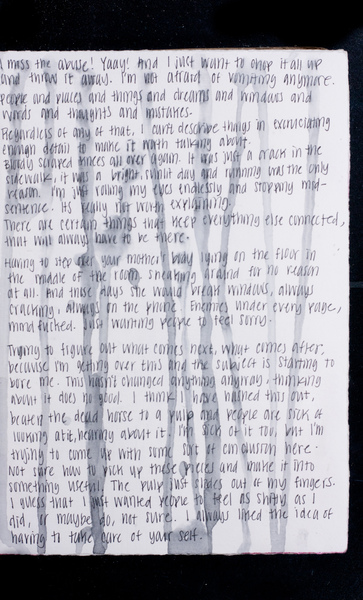 I miss the abuse! Yaay! And I just want to chop it all up
and throw it away. I'm not afraid of vomiting anymore.
People and places and things and dreams and windows and
words and thoughts and mistakes.
Regardless of any of that, I can't describe things in excruciating
enough detail to make it worth talking about.
Bloody scraped knees all over again. It was just a crack in the
sidewalk, it was a bright, sunny day and running was the only
reason. I'm just rolling my eyes endlessly and stopping mid-
sentence. Its really not worth explaining.
There are certain things that keep everything else connected,
that will always have to be there.
Having to step over your mother's body lying on the floor in
the middle of the room, sneaking around for no reason
at all. And those days she would break windows, always
cracking, always on the phone. Enemies under every page,
mind fucked. Just wanting people to feel sorry.
Trying to figure out what comes next, what comes after,
because I'm getting over this and the subject is starting to
bore me. This hasn't changed anything anyway, thinking
about it does no good. I think I have hashed this out,
beaten the dead horse to a pulp and people are sick of
looking at it, hearing about it. I'm sick of it too, but I'm
trying to come up with some sort of conclusion here.
Not sure how to pick up these pieces and make it into
something useful. The pulp just slides out of my fingers.
I guess that I just wanted people to feel as shitty as I
did, or maybe do, not sure. I always liked the idea of
having to take care of your self.